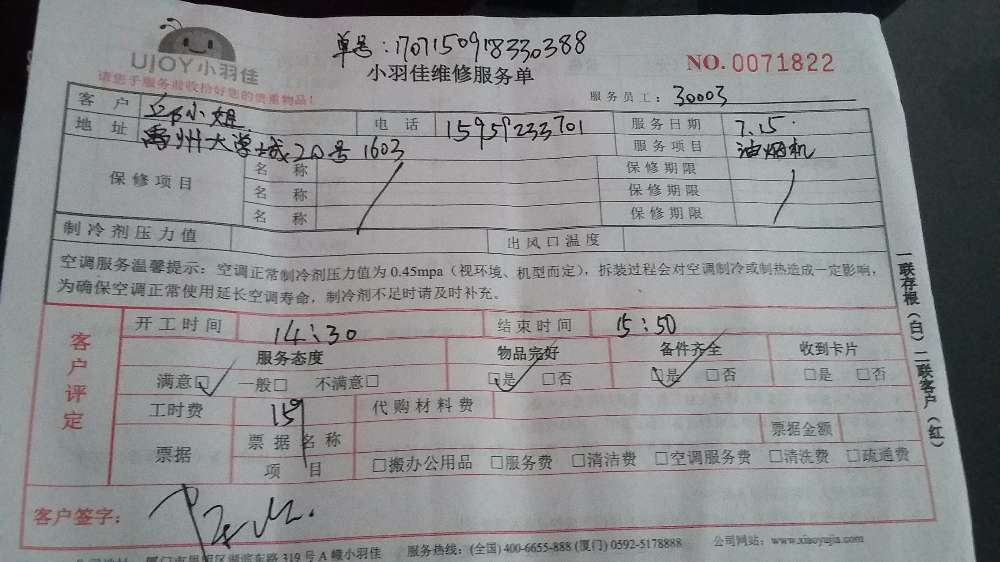 UJOY小羽佳
单号:170715091833​0388
NO.0071822
小羽佳维修服务单
请您于服务前收拾好您的贵重物品!
服务员工:30003
客户 邱小姐 电话 15959233701 服务日期 7.15.
地址 禹州大学城20号1603 服务项目 油烟机
保修项目 名称 保修期限
名称 保修期限
名称 保修期限
制冷剂压力值 出风口温度
空调服务温馨提示:空调正常制冷剂压力值为0.45mpa(视环境、机型而定),拆装过程会对空调制冷或制热造成一定影响,
为确保空调正常使用延长空调寿命,制冷剂不足时请及时补充。
客户评定
开工时间 14:30 结束时间 15:50
服务态度 物品完好 备件齐全 收到卡片
满意☑ 一般□ 不满意□ ☑是 □否 ☑是 □否 □是 □否
工时费 159 代购材料费
票据 票据名称 票据金额
项目 □搬办公用品 □服务费 □清洁费 □空调服务费 □清洗费 □疏通费
客户签字:
一联存根(白)二联客户(红)
319号A幢小羽佳 服务热线:(全国)400-6655-888 (厦门)0592-5178888 公司网站:www.xiaoyujia.com